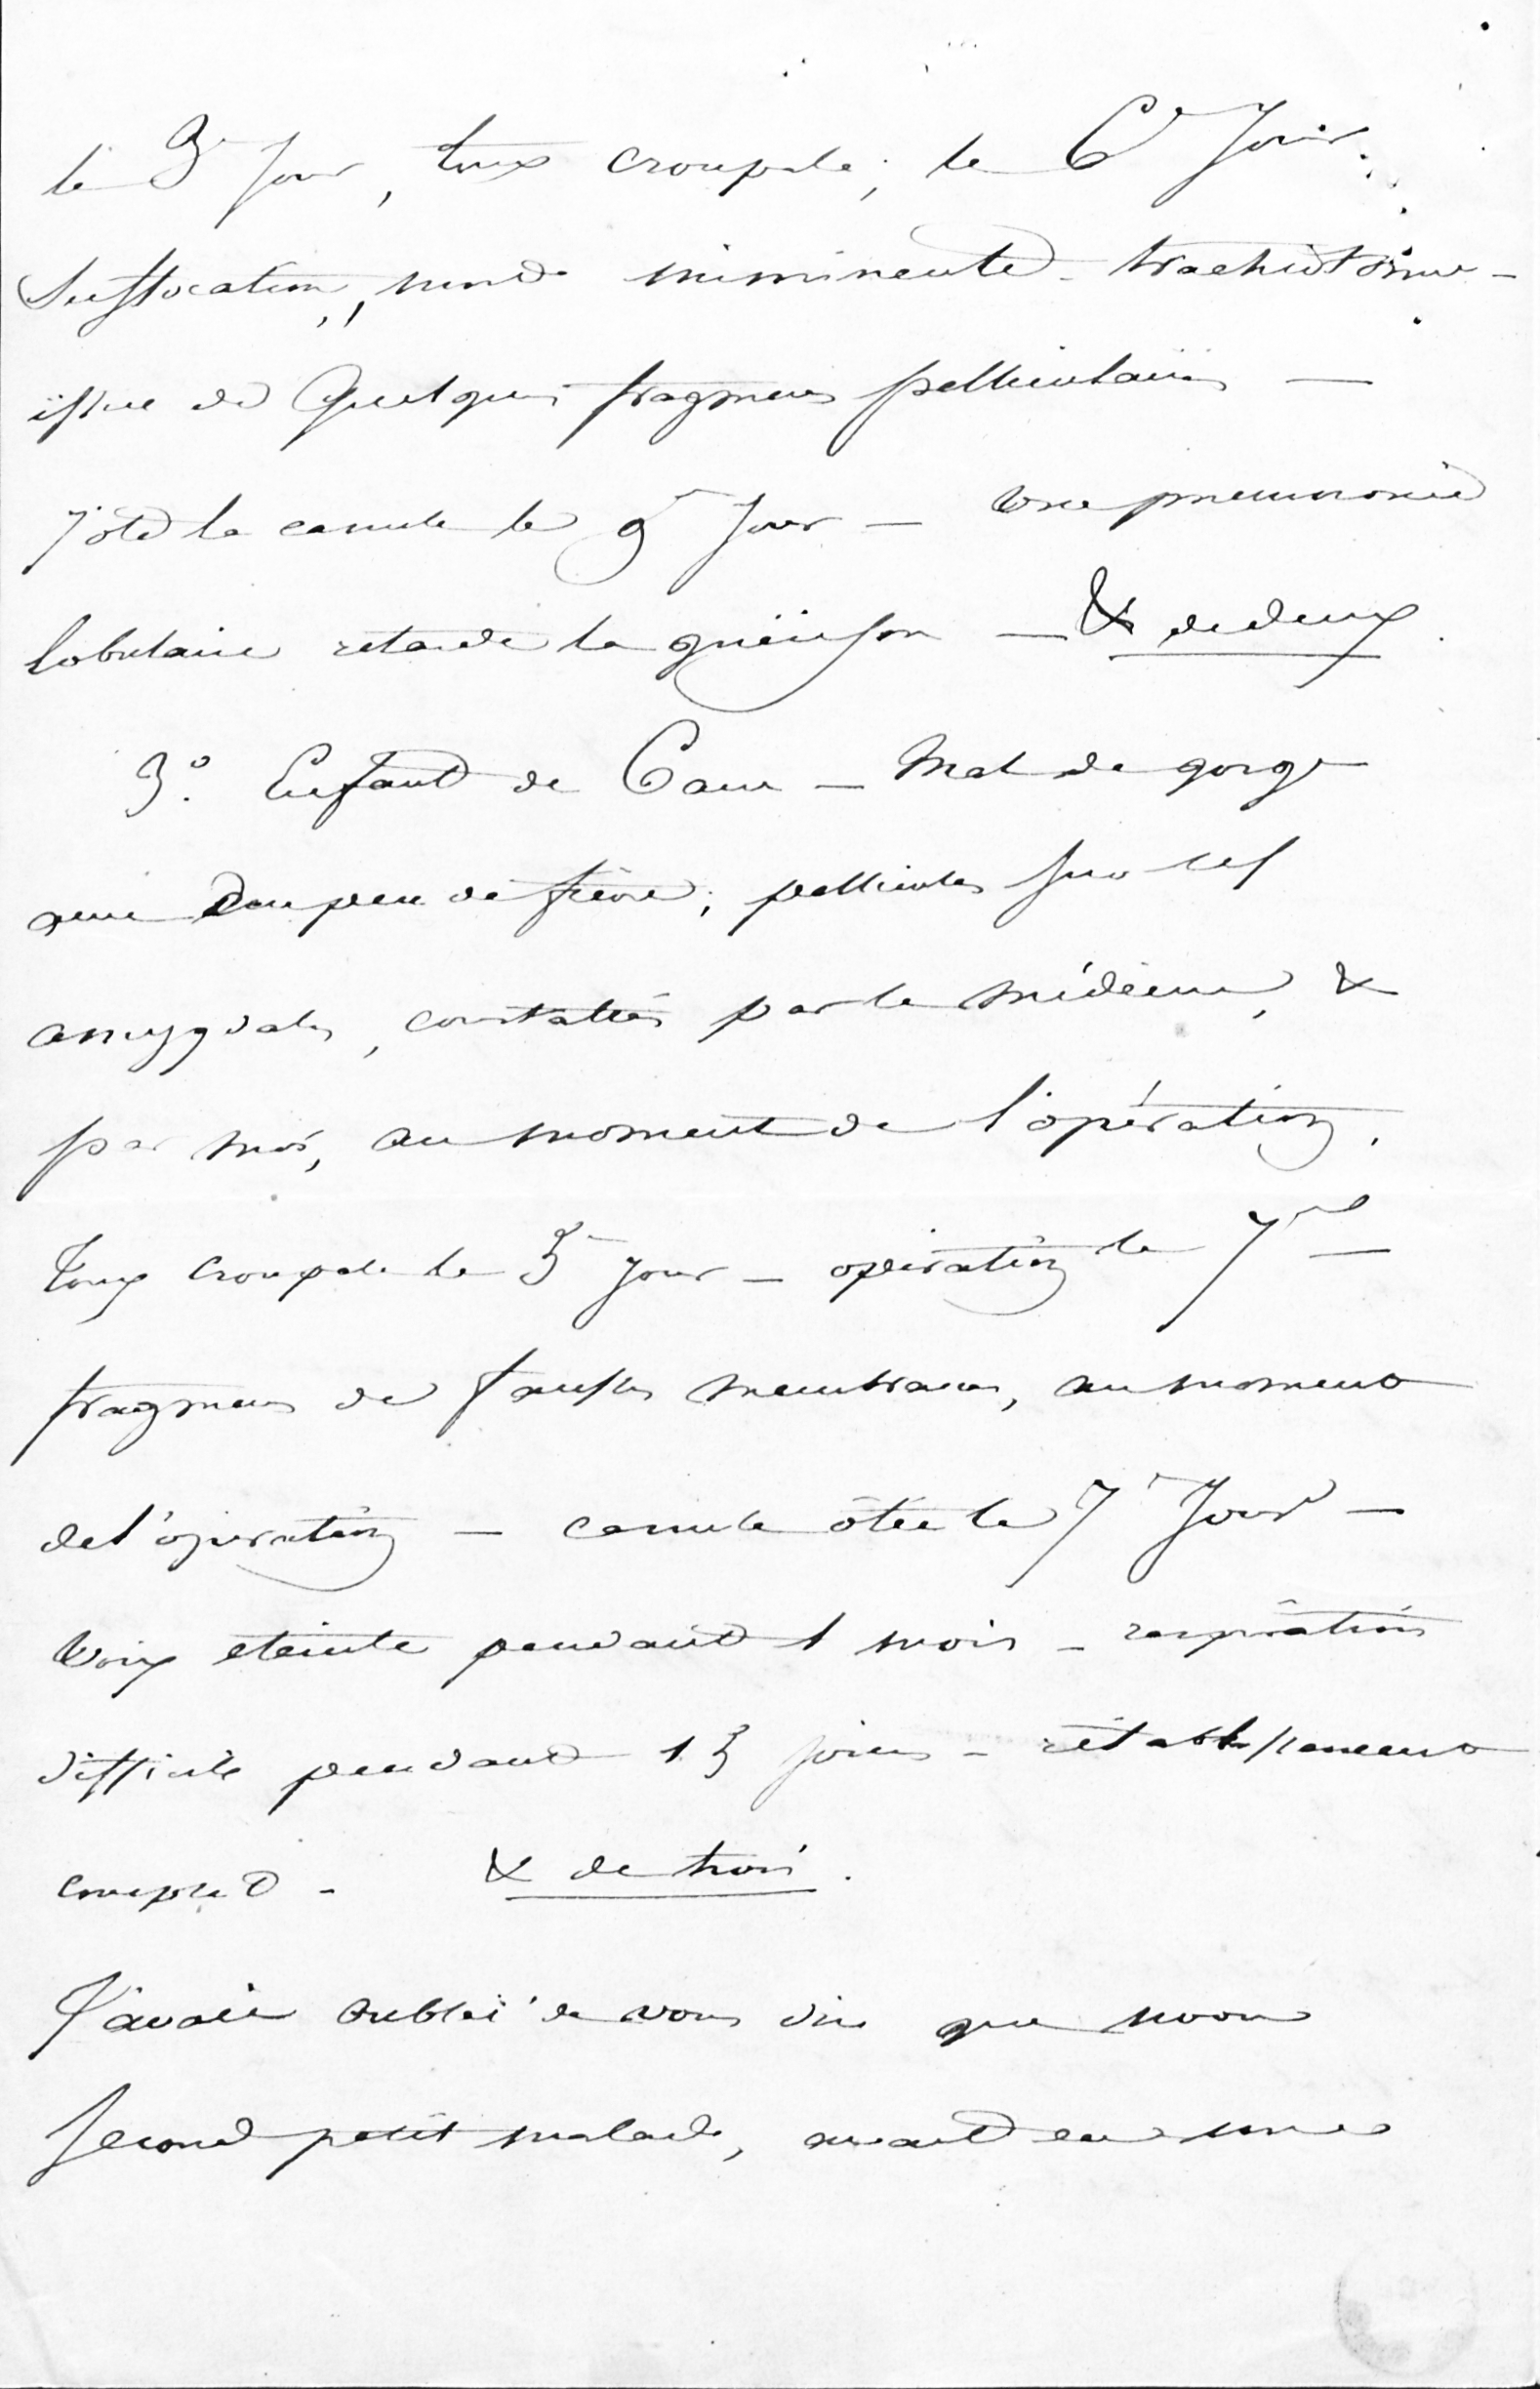 le 3e jour, toux croupale; le 6e jour
suffocation, mort imminente - trachéotomie -
issue de quelques fragmens pelliculaires —
j'ôte la canule le 9e jour — une pneumonie
lobulaire retarde la guérison — & de deux.
3o. Enfant de Caen — mal de gorge
d'un peu de fièvre; pellicules sur les
amygdales, constatées par le médecin, &
par moi, au moment de l'opération.
Toux croupale le 5e jour — opération le 7me —
fragmens de fausses membranes, au moment
de l'opération — canule ôtée le 7e jour —
voix eteinte pendant 1 mois - respiration
difficile pendant 15 jours - rétablissement
complet - & de trois.
J'avais oublié de vous dire que mon
second petit malade, avait eu une